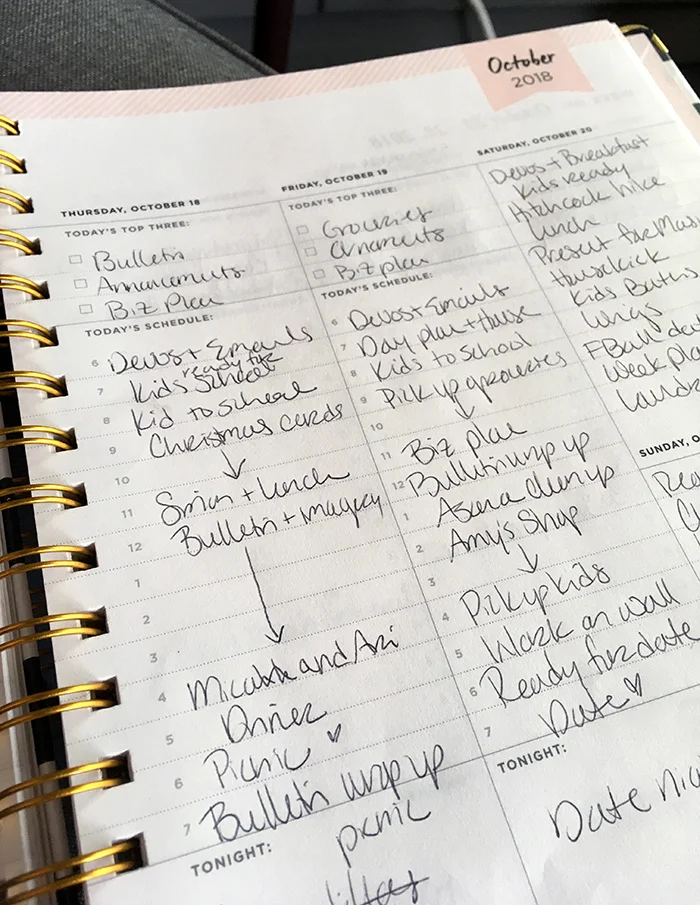 October
2018
THURSDAY, OCTOBER 18
TODAY'S TOP THREE:
Bulletin
Annuncements
Biz Plan
TODAY'S SCHEDULE:
6 Devos + Emails
ready for
7 Kids School
8 Kid to school
9 Christmas cards
10
11 + lunch
12 Bulletin + Imagery
1
2
3
4 and
5 Dinner
6 Picnic ♡
7 Bulletin wrap up
TONIGHT:
picnic
FRIDAY, OCTOBER 19
TODAY'S TOP THREE:
Groceries
Ornaments
Biz plan
TODAY'S SCHEDULE:
6 Devos + Emails
7 Day plan + House
8 Kids to School
9 Pick up groceries
10
11 Biz plan
12 Bulletin wrap up
1 Asana clean up
2 Amy's Shop
3
4 Pick up kids
5 Work on wall
6 Ready for date
7 Date ♡
TONIGHT:
Date
SATURDAY, OCTOBER 20
Devos + Breakfast
Kids ready
Hitchcock hike
lunch
Present for
House kick
Kids
Wrigs
FBall
Week
SUNDAY, O